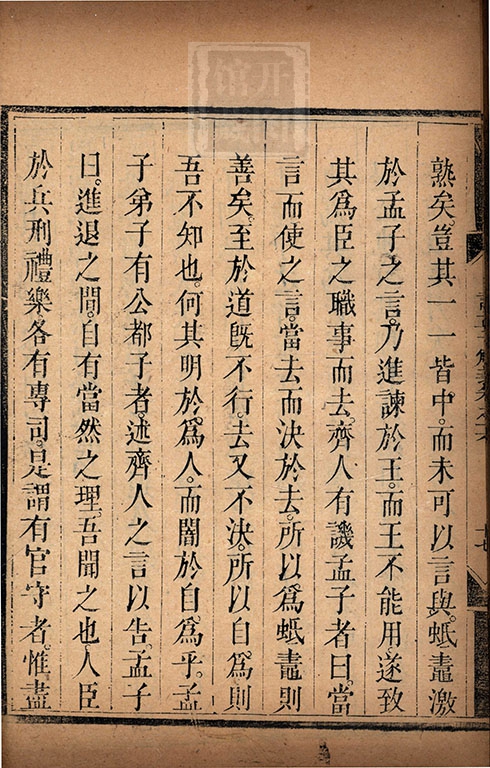 熟矣豈其一一皆中。而未可以言與。蚳鼃激
於孟子之言。乃進諫於王。而王不能用。遂致
其爲臣之職事而去。齊人有譏孟子者曰。當
言而使之言。當去而決於去。所以爲蚳鼃則
善矣。至於道旣不行。去又不決。所以自爲則
吾不知也。何其明於爲人。而闇於自爲乎。孟
子弟子有公都子者。述齊人之言以告。孟子
曰。進退之間。自有當然之理。吾聞之也。人臣
於兵刑禮樂。各有專司。是謂有官守者。惟盡